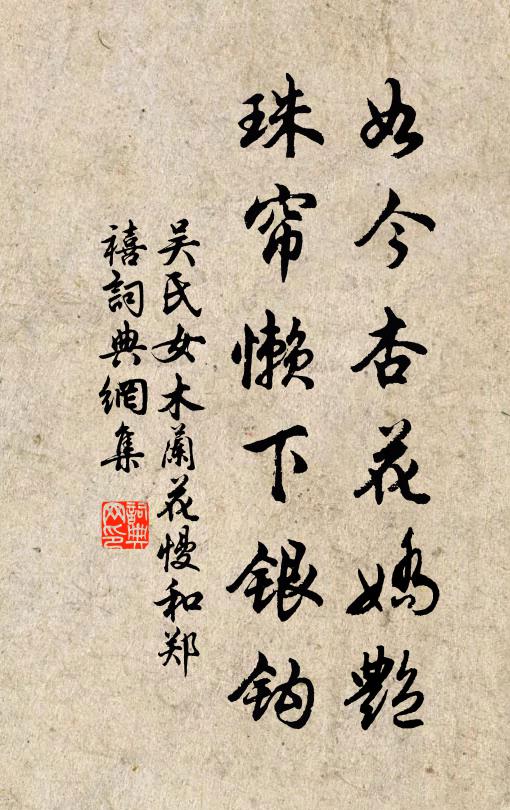 如今杏花娇艳
珠帘懒下银钩
吴氏女木兰花慢和郑
禧詞典網集
詞典网印